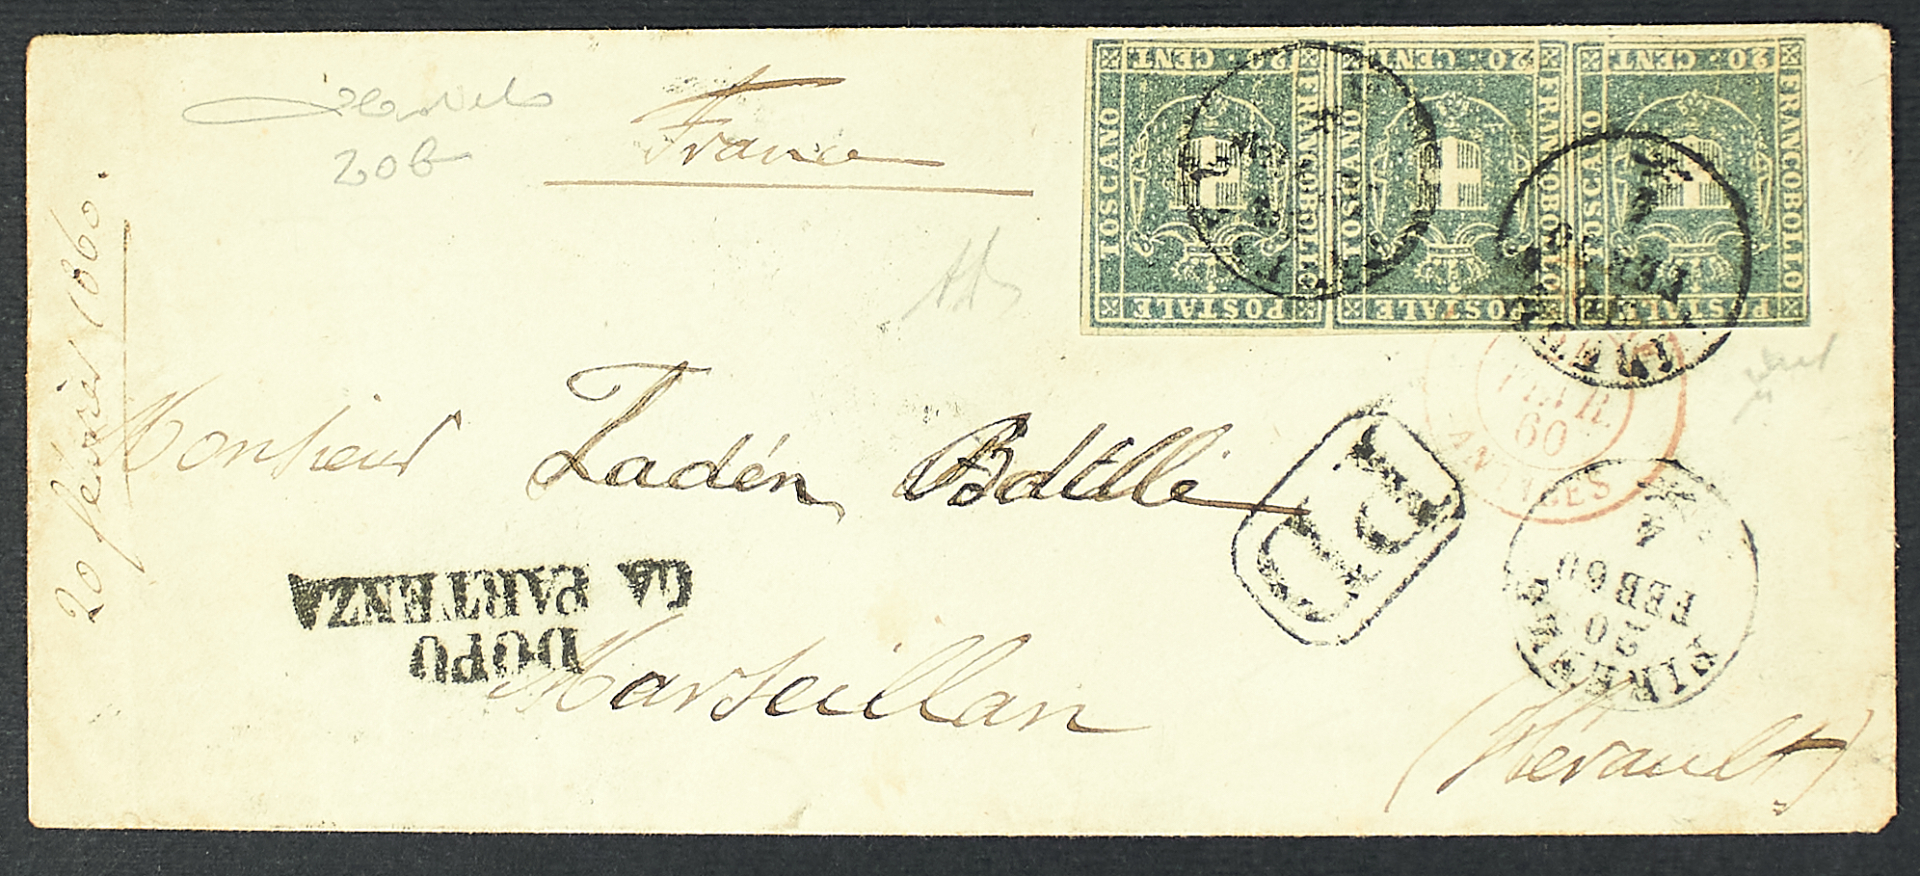 France
20 B
20 février 1860.
FRANCOBOLLO
POSTALE
TOSCANO
20 · CENT
FRANCOBOLLO
POSTALE
TOSCANO
20 · CENT
FRANCOBOLLO
POSTALE
TOSCANO
20 · CENT
Monsieur Ladén
60
ANTIBES
PD
FIRENZE
20
FEB 60
4
DOPO
LA PARTENZA
Marseillan
(Hérault)